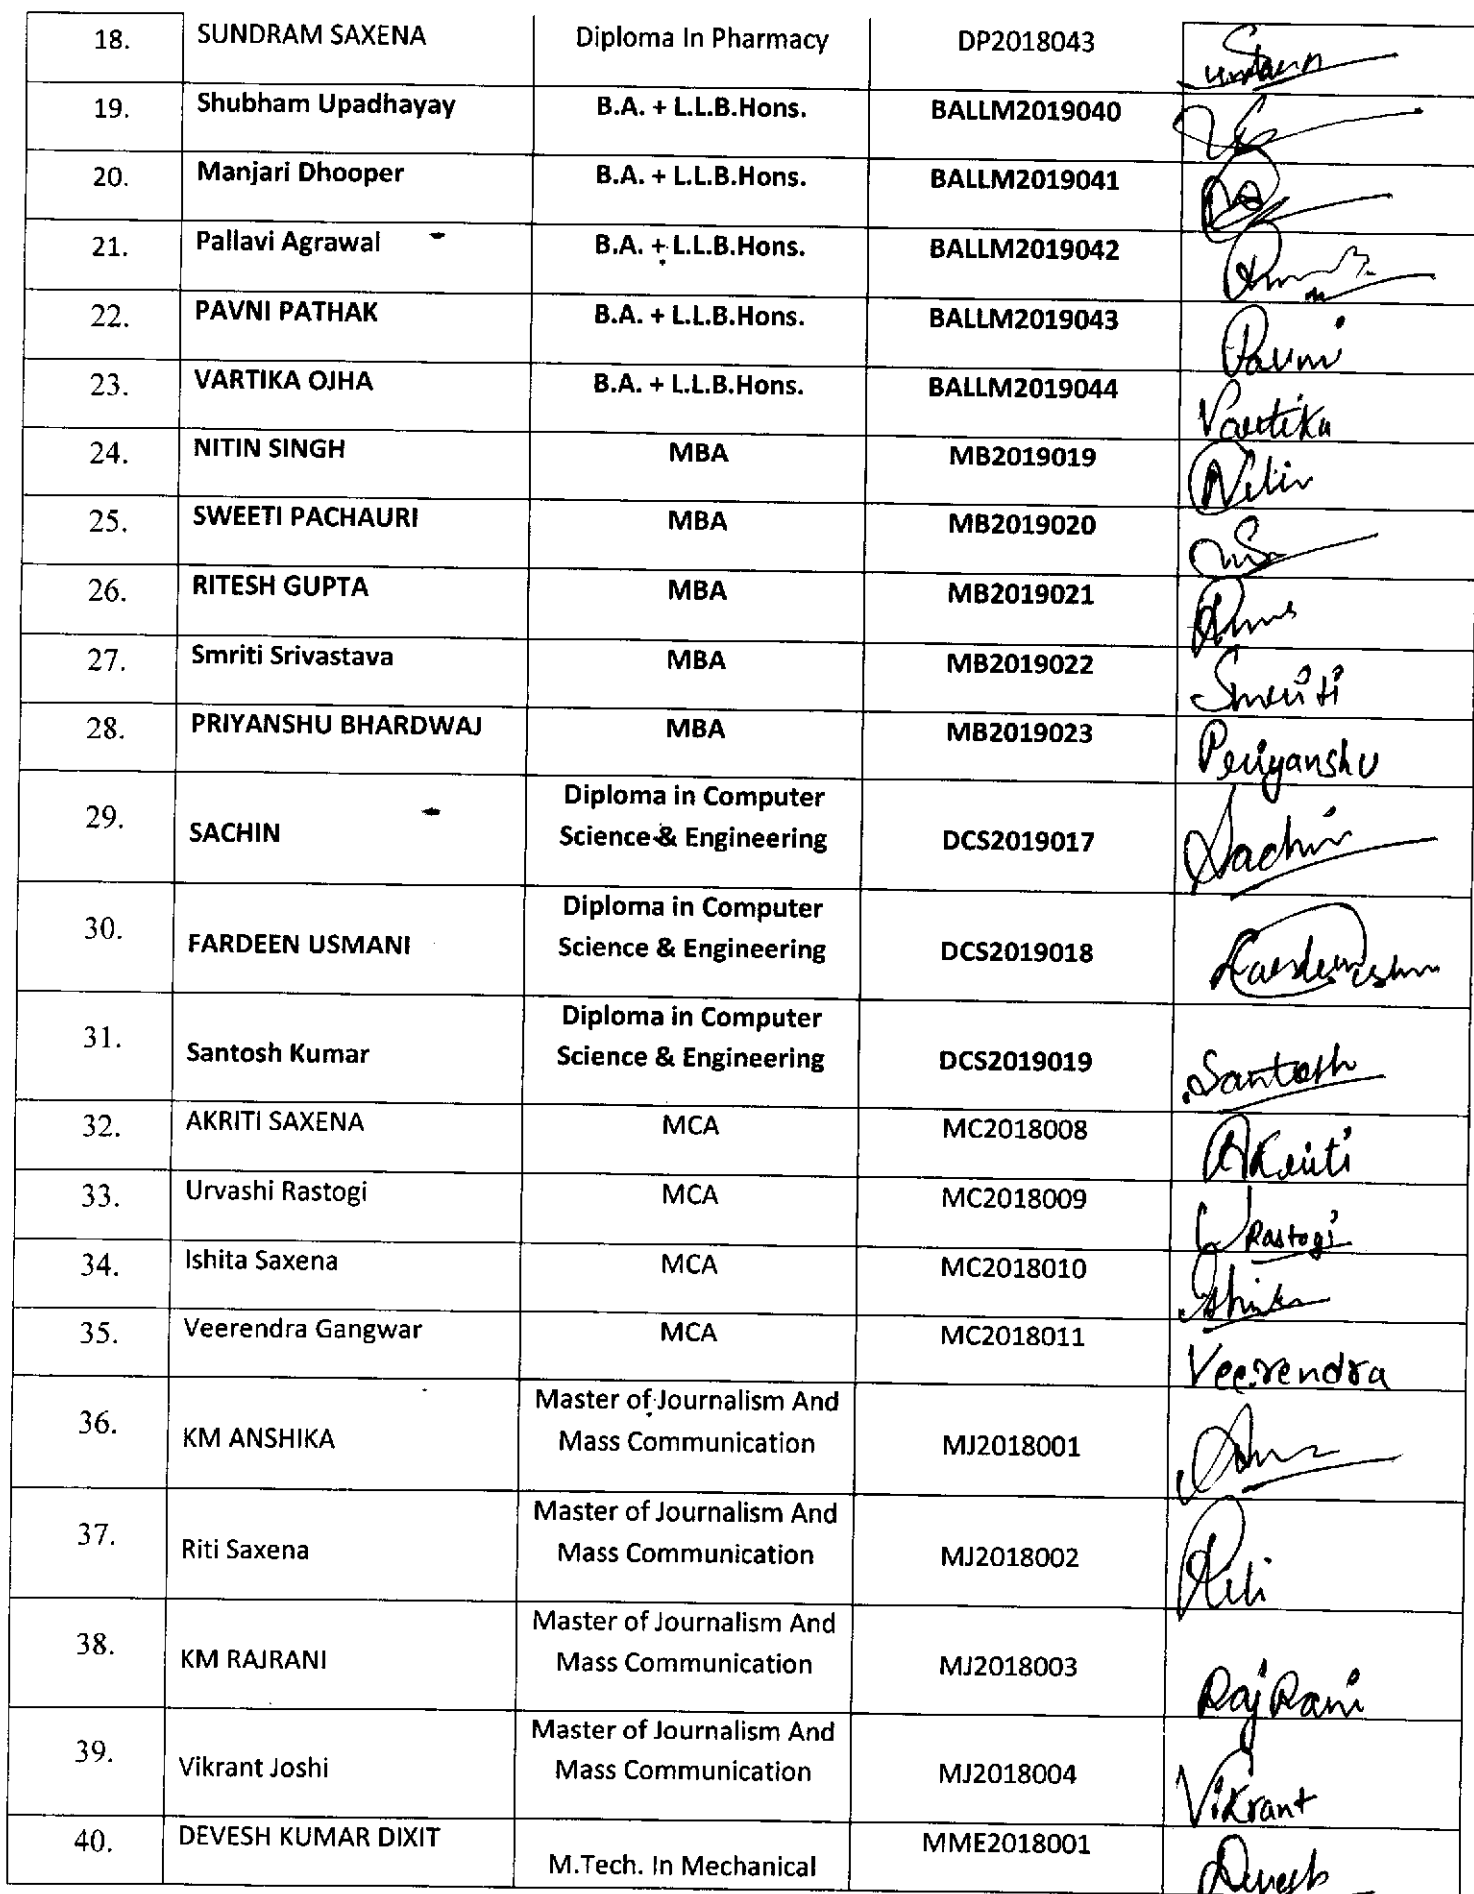 18. SUNDRAM SAXENA Diploma In Pharmacy DP2018043
19. Shubham Upadhayay B.A. + L.L.B.Hons. BALLM2019040
20. Manjari Dhooper B.A. + L.L.B.Hons. BALLM2019041
21. Pallavi Agrawal B.A. + L.L.B.Hons. BALLM2019042
22. PAVNI PATHAK B.A. + L.L.B.Hons. BALLM2019043 Pavni
23. VARTIKA OJHA B.A. + L.L.B.Hons. BALLM2019044 Vartika
24. NITIN SINGH MBA MB2019019 Nitin
25. SWEETI PACHAURI MBA MB2019020
26. RITESH GUPTA MBA MB2019021
27. Smriti Srivastava MBA MB2019022 Smriti
28. PRIYANSHU BHARDWAJ MBA MB2019023 Priyanshu
Diploma in Computer
29. SACHIN Science & Engineering DCS2019017 Sachin
Diploma in Computer
30. FARDEEN USMANI Science & Engineering DCS2019018
Diploma in Computer
31. Santosh Kumar Science & Engineering DCS2019019 Santosh
32. AKRITI SAXENA MCA MC2018008 Akriti
33. Urvashi Rastogi MCA MC2018009 URastogi
34. Ishita Saxena MCA MC2018010
35. Veerendra Gangwar MCA MC2018011 Veerendra
Master of Journalism And
36. KM ANSHIKA Mass Communication MJ2018001
Master of Journalism And
37. Riti Saxena Mass Communication MJ2018002 Riti
Master of Journalism And
38. KM RAJRANI Mass Communication MJ2018003 Raj Rani
Master of Journalism And
39. Vikrant Joshi Mass Communication MJ2018004 Vikrant
40. DEVESH KUMAR DIXIT M.Tech. In Mechanical MME2018001 Devesh